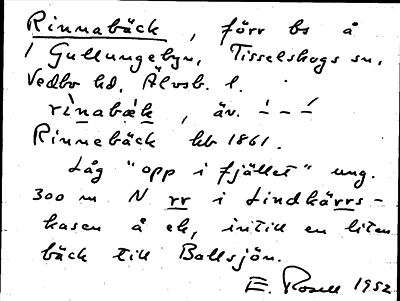 Rinnabäck, förr bs å
/ Gullungebyn, Tisselskogs sn,
Vedbo hd, Älvsb. l.
rìnabæ̀k, äv. – – –́
Rinnebäck kb 1861.
Låg "opp i fjället" ung.
300 m N rr i Lindkärrs-
kasen å ek, intill en liten
bäck till Ballsjön.
E. Rosell 1952